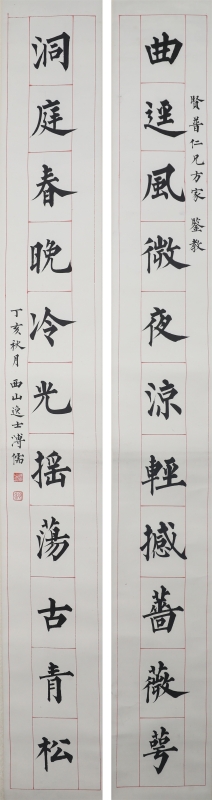 賢普仁兄方家 鑒教
曲逕風微夜涼輕撼薔薇萼
洞庭春晚冷光搖蕩古青松
丁亥秋月 西山逸士溥儒